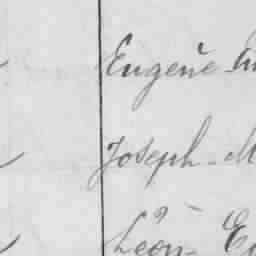 Eugène
Joseph - M
Léon - E